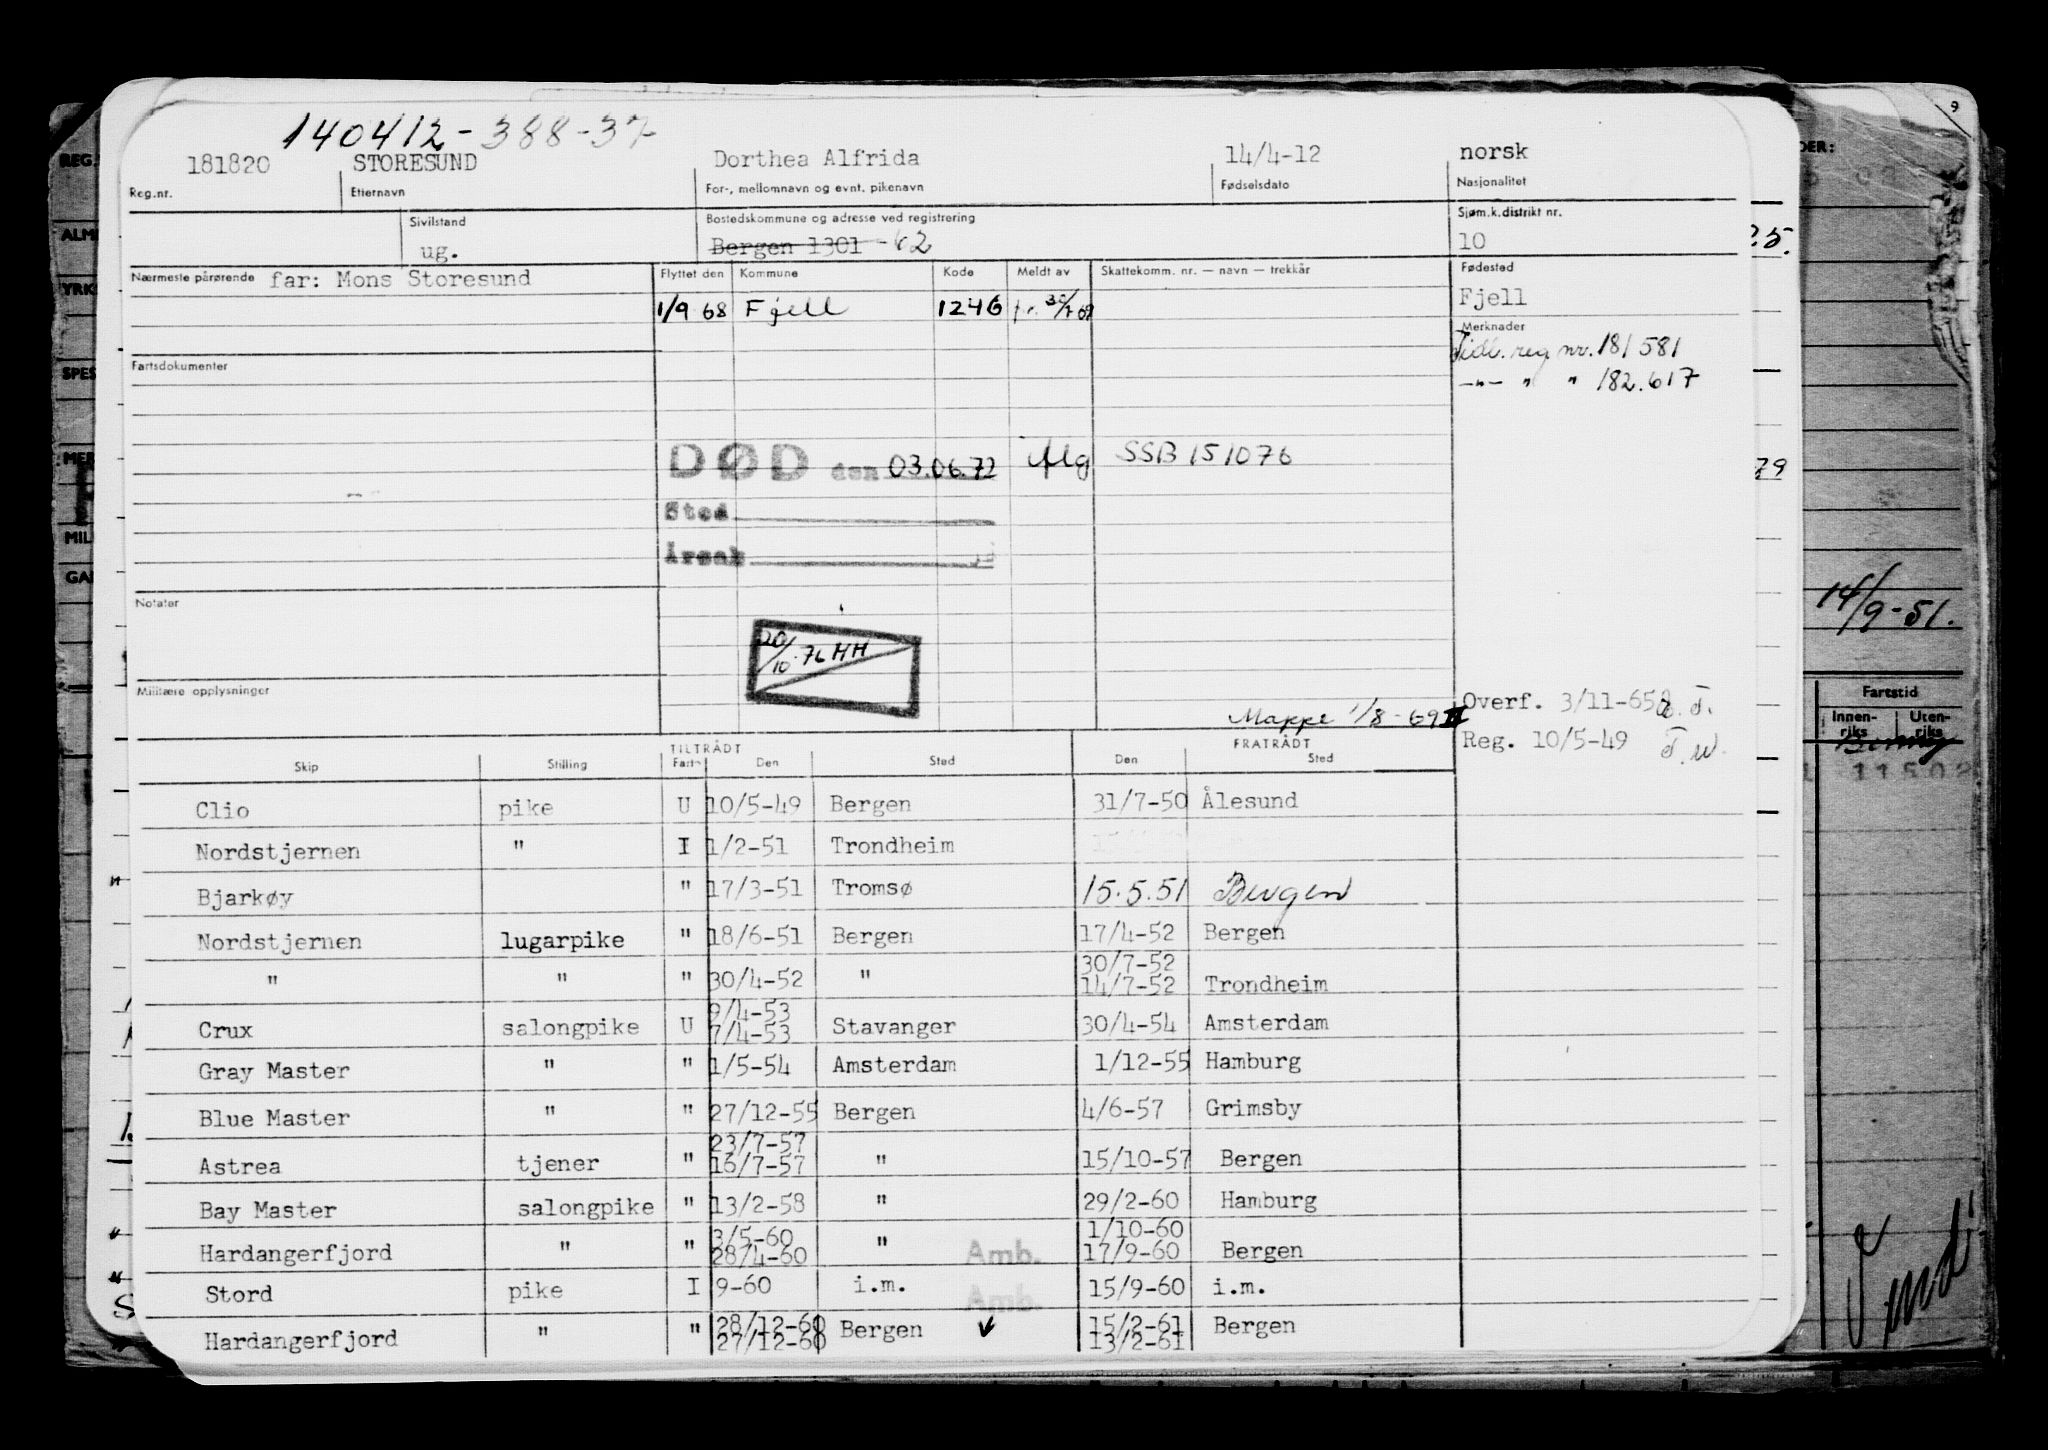 140412-388-37
181820 STORESUND Dorthea Alfrida 14/4-12 norsk
Reg.nr. Etternavn For-, mellomnavn og evnt. pikenavn Fødselsdato Nasjonalitet
Sivilstand Bostedskommune og adresse ved registrering Sjøm.k.distrikt nr.
ug. Bergen 1301 10
Nærmeste pårørende far: Mons Storesund Flyttet den Kommune Kode Meldt av Skattekomm. nr. — navn — trekkår Fødested
1/9 68 Fjell 1246 Fjell
Merknader
Tidl. reg nr. 181581
—"— " " 182.617
Fartsdokumenter
DØD den 03.06.72 SSB 151076
Sted
Årsak
Notater
20/10-76 HH
Militære opplysninger
Mappe 1/8-69 Overf. 3/11-65
Reg. 10/5-49 T.W.
TILTRÅDT FRATRÅDT
Skip Stilling Fart Den Sted Den Sted
Clio pike U 10/5-49 Bergen 31/7-50 Ålesund
Nordstjernen " I 1/2-51 Trondheim
Bjarkøy " 17/3-51 Tromsø 15.5.51 Bergen
Nordstjernen lugarpike " 18/6-51 Bergen 17/4-52 Bergen
30/7-52
" " " 30/4-52 " 14/7-52 Trondheim
9/4-53
Crux salongpike U 7/4-53 Stavanger 30/4-54 Amsterdam
Gray Master " " 1/5-54 Amsterdam 1/12-55 Hamburg
Blue Master " " 27/12-55 Bergen 4/6-57 Grimsby
23/7-57
Astrea tjener " 16/7-57 " 15/10-57 Bergen
Bay Master salongpike " 13/2-58 " 29/2-60 Hamburg
3/5-60 1/10-60
Hardangerfjord " " 28/4-60 " Amb. 17/9-60 Bergen
Stord pike I 9-60 i.m. Amb. 15/9-60 i.m.
28/12-60 15/2-61
Hardangerfjord " " 27/12-60 Bergen 13/2-61 Bergen
9
REG.
ALM
YRK
SPES
MER
MIL
GA
DER:
25.
79
14/9-51.
Fartstid
Innenriks Utenriks
11502